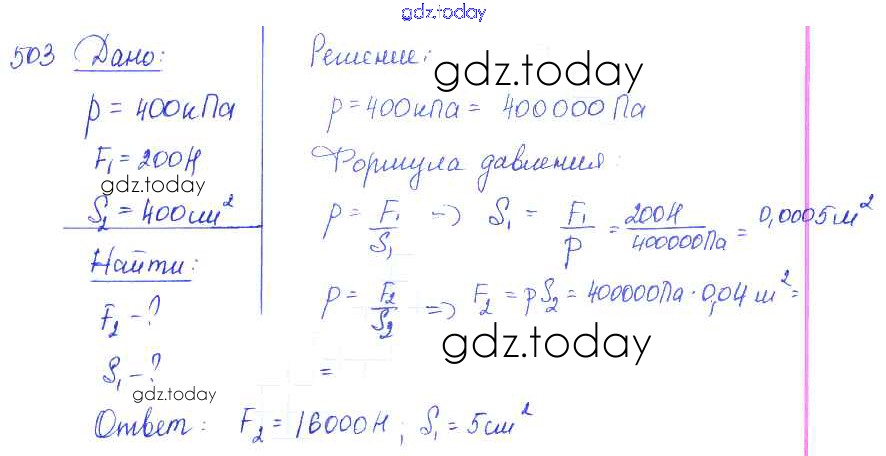 gdz.today
503 Дано:
p = 400кПа
F₁ = 200Н
gdz.today
S₂ = 400см²
Найти:
F₂ - ?
S₁ - ?
gdz.today
Решение:
gdz.today
p = 400кПа = 400000 Па
Формула давления:
p = F₁/S₁ => S₁ = F₁/p = 200Н/400000Па = 0,0005м²
p = F₂/S₂ => F₂ = pS₂ = 400000Па · 0,04 м² =
gdz.today
=
Ответ: F₂ = 16000Н; S₁ = 5см²